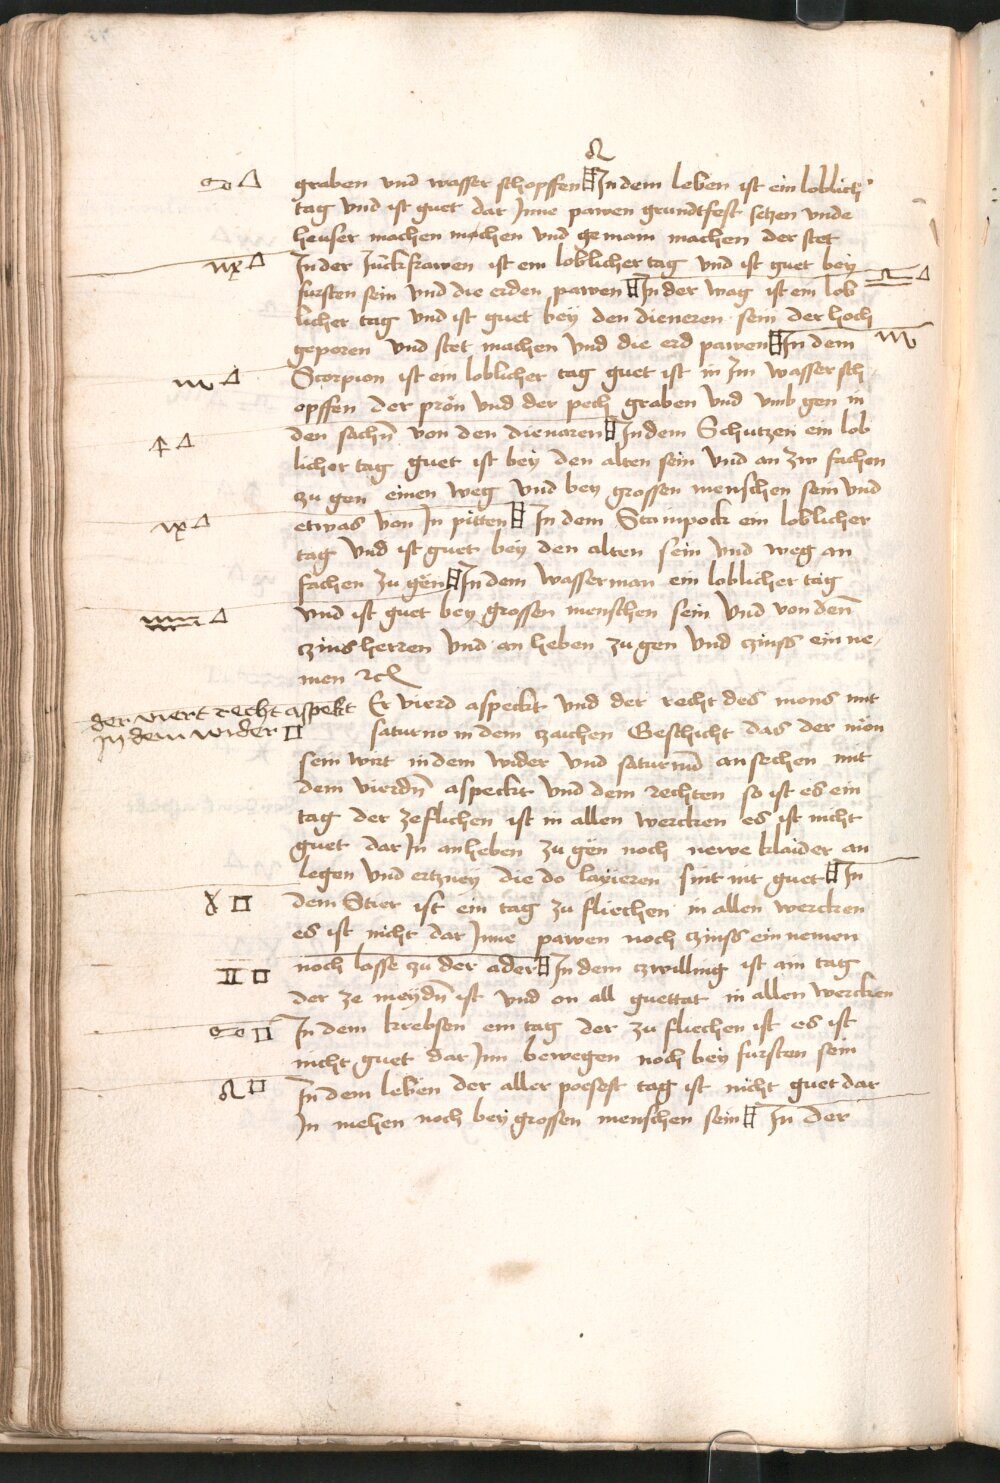 ♌
♋ △ graben vnd wasser schopffen In dem leben ist ein loblich
tag vnd ist guet dar Inne pawen grundtfest setzen vnde
heuser machen machen vnd gemain machen der stet
♍ △ In der Junckfrawen ist ein loblicher tag vnd ist guet bey
fursten sein vnd die erden pawen In der wag ist ein lob ♎ △
licher tag vnd ist guet bey den dieneren sein der hoch
geporen vnd stet machen vnd die erd pawen In dem ♏
♏ △ Scorpion ist ein loblicher tag guet ist in Im wasser sch
opffen der prön vnd der pech graben vnd vmb gen in
♐ △ den sachn̄ von den dienaren In dem Schutzen ein lob
licher tag guet ist bey den alten sein vnd an zw fachen
zu gen einen weg vnd bey grossen menschen sein vnd
♑ △ etwas von In pitten In dem Stainpock ein loblicher
tag vnd ist guet bey den alten sein vnd weg an
fachen zu gen In dem wasserman ein loblicher tag
♒ △ vnd ist guet bey grossen menschen sein vnd von den̄
czins herren vnd an heben zu gen vnd czinss ein ne
men ⁊c
der viert recht aspekt Er vierd aspeckt vnd der recht des mons mit
In dem wider □ saturno in dem czaichen Geschicht das der mon
sein wirt in dem wider vnd saturnū ansechen mit
dem vierdn̄ aspeckt vnd dem rechten so ist es ein
tag der zeflichen ist in allen wercken es ist nicht
guet dar In anheben zu gen noch newe klaider an
legen vnd ertzney die do laxieren sint nit guet In
♉ □ dem Stier ist ein tag zu fliechen in allen wercken
es ist nicht dar Inne pawen noch czinss ein nemen
♊ □ noch lasse zu der ader In dem czwilling ist ain tag
der ze meydn̄ ist vnd on all guettat in allen wercken
♋ □ In dem krebsen ein tag der zu fliechen ist es ist
nicht guet dar Inn bewegen noch bey fursten sein
♌ □ In dem leben der aller poesest tag ist nicht guet dar
In nehen noch bey grossen menschen sein In der